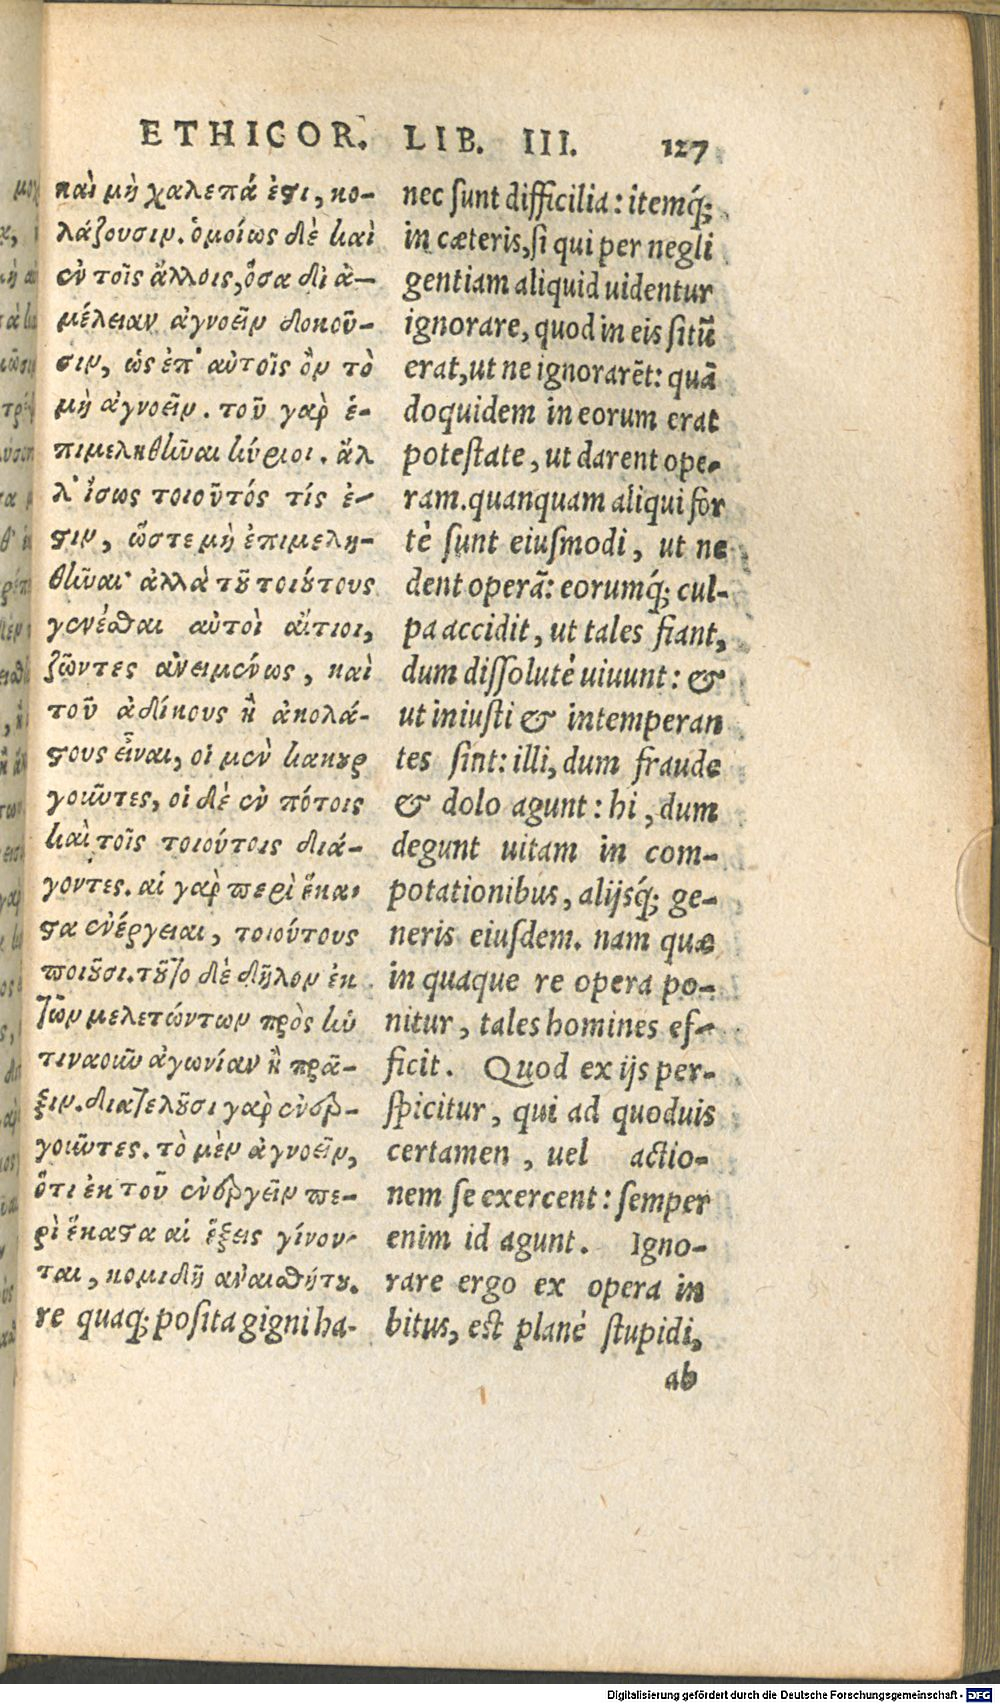 ETHICOR. LIB. III. 127
καὶ μὴ χαλεπά ἐστι, κο-
λάζουσιν. ὁμοίως δὲ καὶ
ἐν τοῖς ἄλλοις, ὅσα δι' ἀ-
μέλειαν ἀγνοεῖν δοκοῦ-
σιν, ὡς ἐπ' αὐτοῖς ὂν τὸ
μὴ ἀγνοεῖν. τοῦ γὰρ ἐ-
πιμεληθῆναι κύριοι. ἀλ
λ' ἴσως τοιοῦτός τίς ἐ-
στιν, ὥστε μὴ ἐπιμελη-
θῆναι· ἀλλὰ τοῦ τοιούτους
γενέσθαι αὐτοὶ αἴτιοι,
ζῶντες ἀνειμένως, καὶ
τοῦ ἀδίκους ἢ ἀκολά-
στους εἶναι, οἱ μὲν κακουρ
γοῦντες, οἱ δὲ ἐν πότοις
καὶ τοῖς τοιούτοις διά-
γοντες. αἱ γὰρ περὶ ἕκα-
στα ἐνέργειαι, τοιούτους
ποιοῦσι. τοῦτο δὲ δῆλον ἐκ
τῶν μελετώντων πρὸς ἡν
τιναοῦν ἀγωνίαν ἢ πρᾶ-
ξιν. διατελοῦσι γὰρ ἐνερ-
γοῦντες. τὸ μὲν ἀγνοεῖν,
ὅτι ἐκ τοῦ ἐνεργεῖν πε-
ρὶ ἕκαστα αἱ ἕξεις γίνον-
ται, κομιδῇ ἀναισθήτου.
re quaq; posita gigni ha-
nec sunt difficilia: itemq́;
in cæteris, si qui per negli
gentiam aliquid uidentur
ignorare, quod in eis sitū
erat, ut ne ignorarēt: quā
doquidem in eorum erat
potestate, ut darent ope-
ram. quanquam aliqui for
tè sunt eiusmodi, ut ne
dent operā: eorumq́; cul-
pa accidit, ut tales fiant,
dum dissolutè uiuunt: &
ut iniusti & intemperan
tes sint: illi, dum fraude
& dolo agunt: hi, dum
degunt uitam in com-
potationibus, alijsq́; ge-
neris eiusdem. nam quæ
in quaque re opera po-
nitur, tales homines ef-
ficit. Quod ex ijs per-
spicitur, qui ad quoduis
certamen, uel actio-
nem se exercent: semper
enim id agunt. Igno-
rare ergo ex opera in
bitus, est planè stupidi,
ab
Digitalisierung gefördert durch die Deutsche Forschungsgemeinschaft - DFG